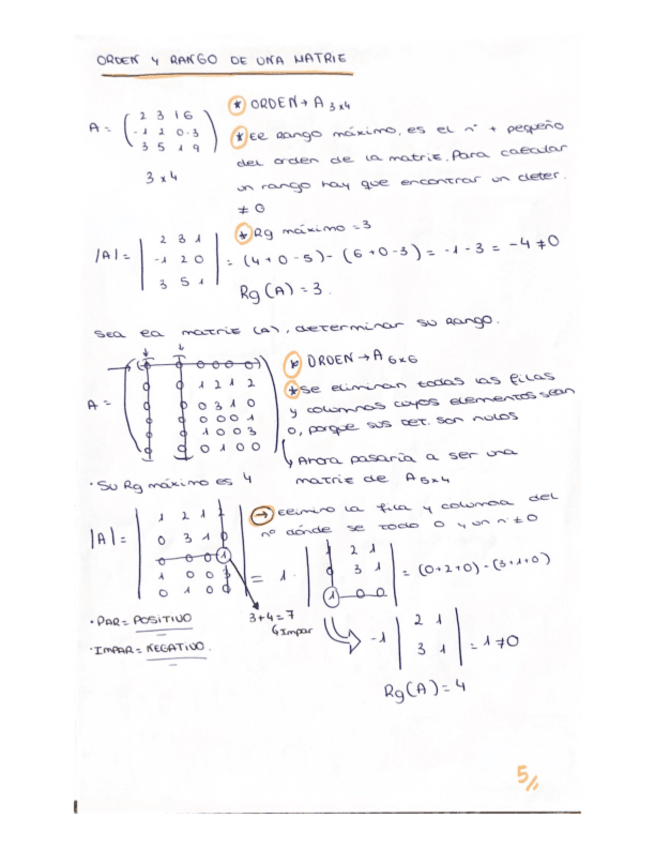 ORDEN Y RANGO DE UNA MATRIE
A = ( 2 3 1 6
-1 2 0 -3
3 5 1 9 )
3 x 4
* ORDEN → A 3x4
* EL Rango máximo, es el nº + pequeño
del orden de la matriz. Para calcular
un rango hay que encontrar un deter.
≠ 0
* Rg máximo = 3
|A| = | 2 3 1
-1 2 0
3 5 1 | = (4 + 0 - 5) - (6 + 0 - 3) = -1 - 3 = -4 ≠ 0
Rg (A) = 3.
Sea la matriz (A), determinar su Rango.
A = ( 0 0 0 0 0 0
0 0 1 2 1 2
0 0 0 3 1 0
0 0 0 0 0 1
0 0 1 0 0 3
0 0 0 1 0 0 )
* ORDEN → A 6x6
* Se eliminan todas las filas
y columnas cuyos elementos sean
0, porque sus det. son nulos
↳ Ahora pasaría a ser una
matriz de A 5x4
· Su Rg máximo es 4
|A| = | 1 2 1 2
0 3 1 0
0 0 0 1
1 0 0 3
0 1 0 0 |
→ Elimino la fila y columna del
nº dónde se todo 0 y un nº ≠ 0
= 1 · | 2 1
3 1
1 0 0 | = (0+2+0) - (3+1+0)
3+4=7
↳ Impar
· PAR = POSITIVO
· IMPAR = NEGATIVO.
-1 | 2 1
3 1 | = 1 ≠ 0
Rg (A) = 4
5//